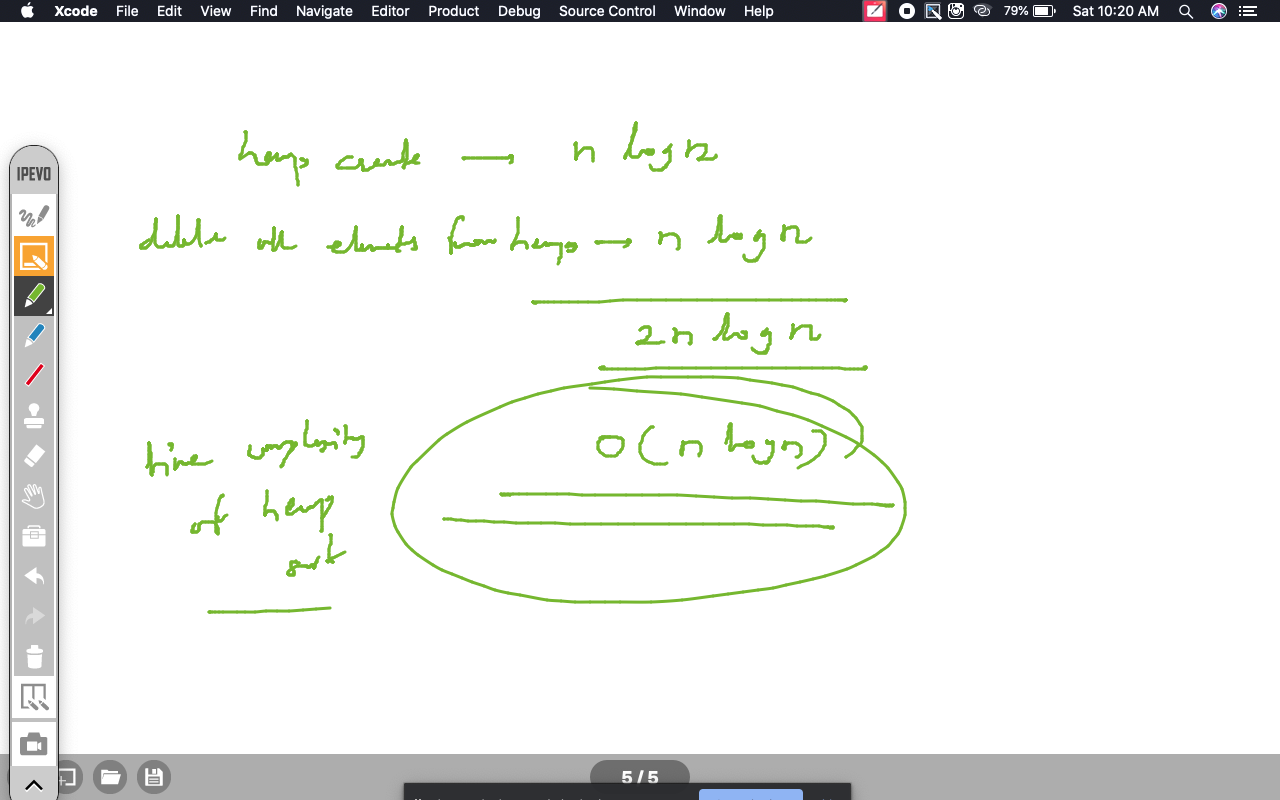 Xcode File Edit View Find Navigate Editor Product Debug Source Control Window Help 79% Sat 10:20 AM
IPEVO
heap create → n log n
delete all elements from heap → n log n
2n log n
O(n log n)
time complexity
of heap
sort
5 / 5